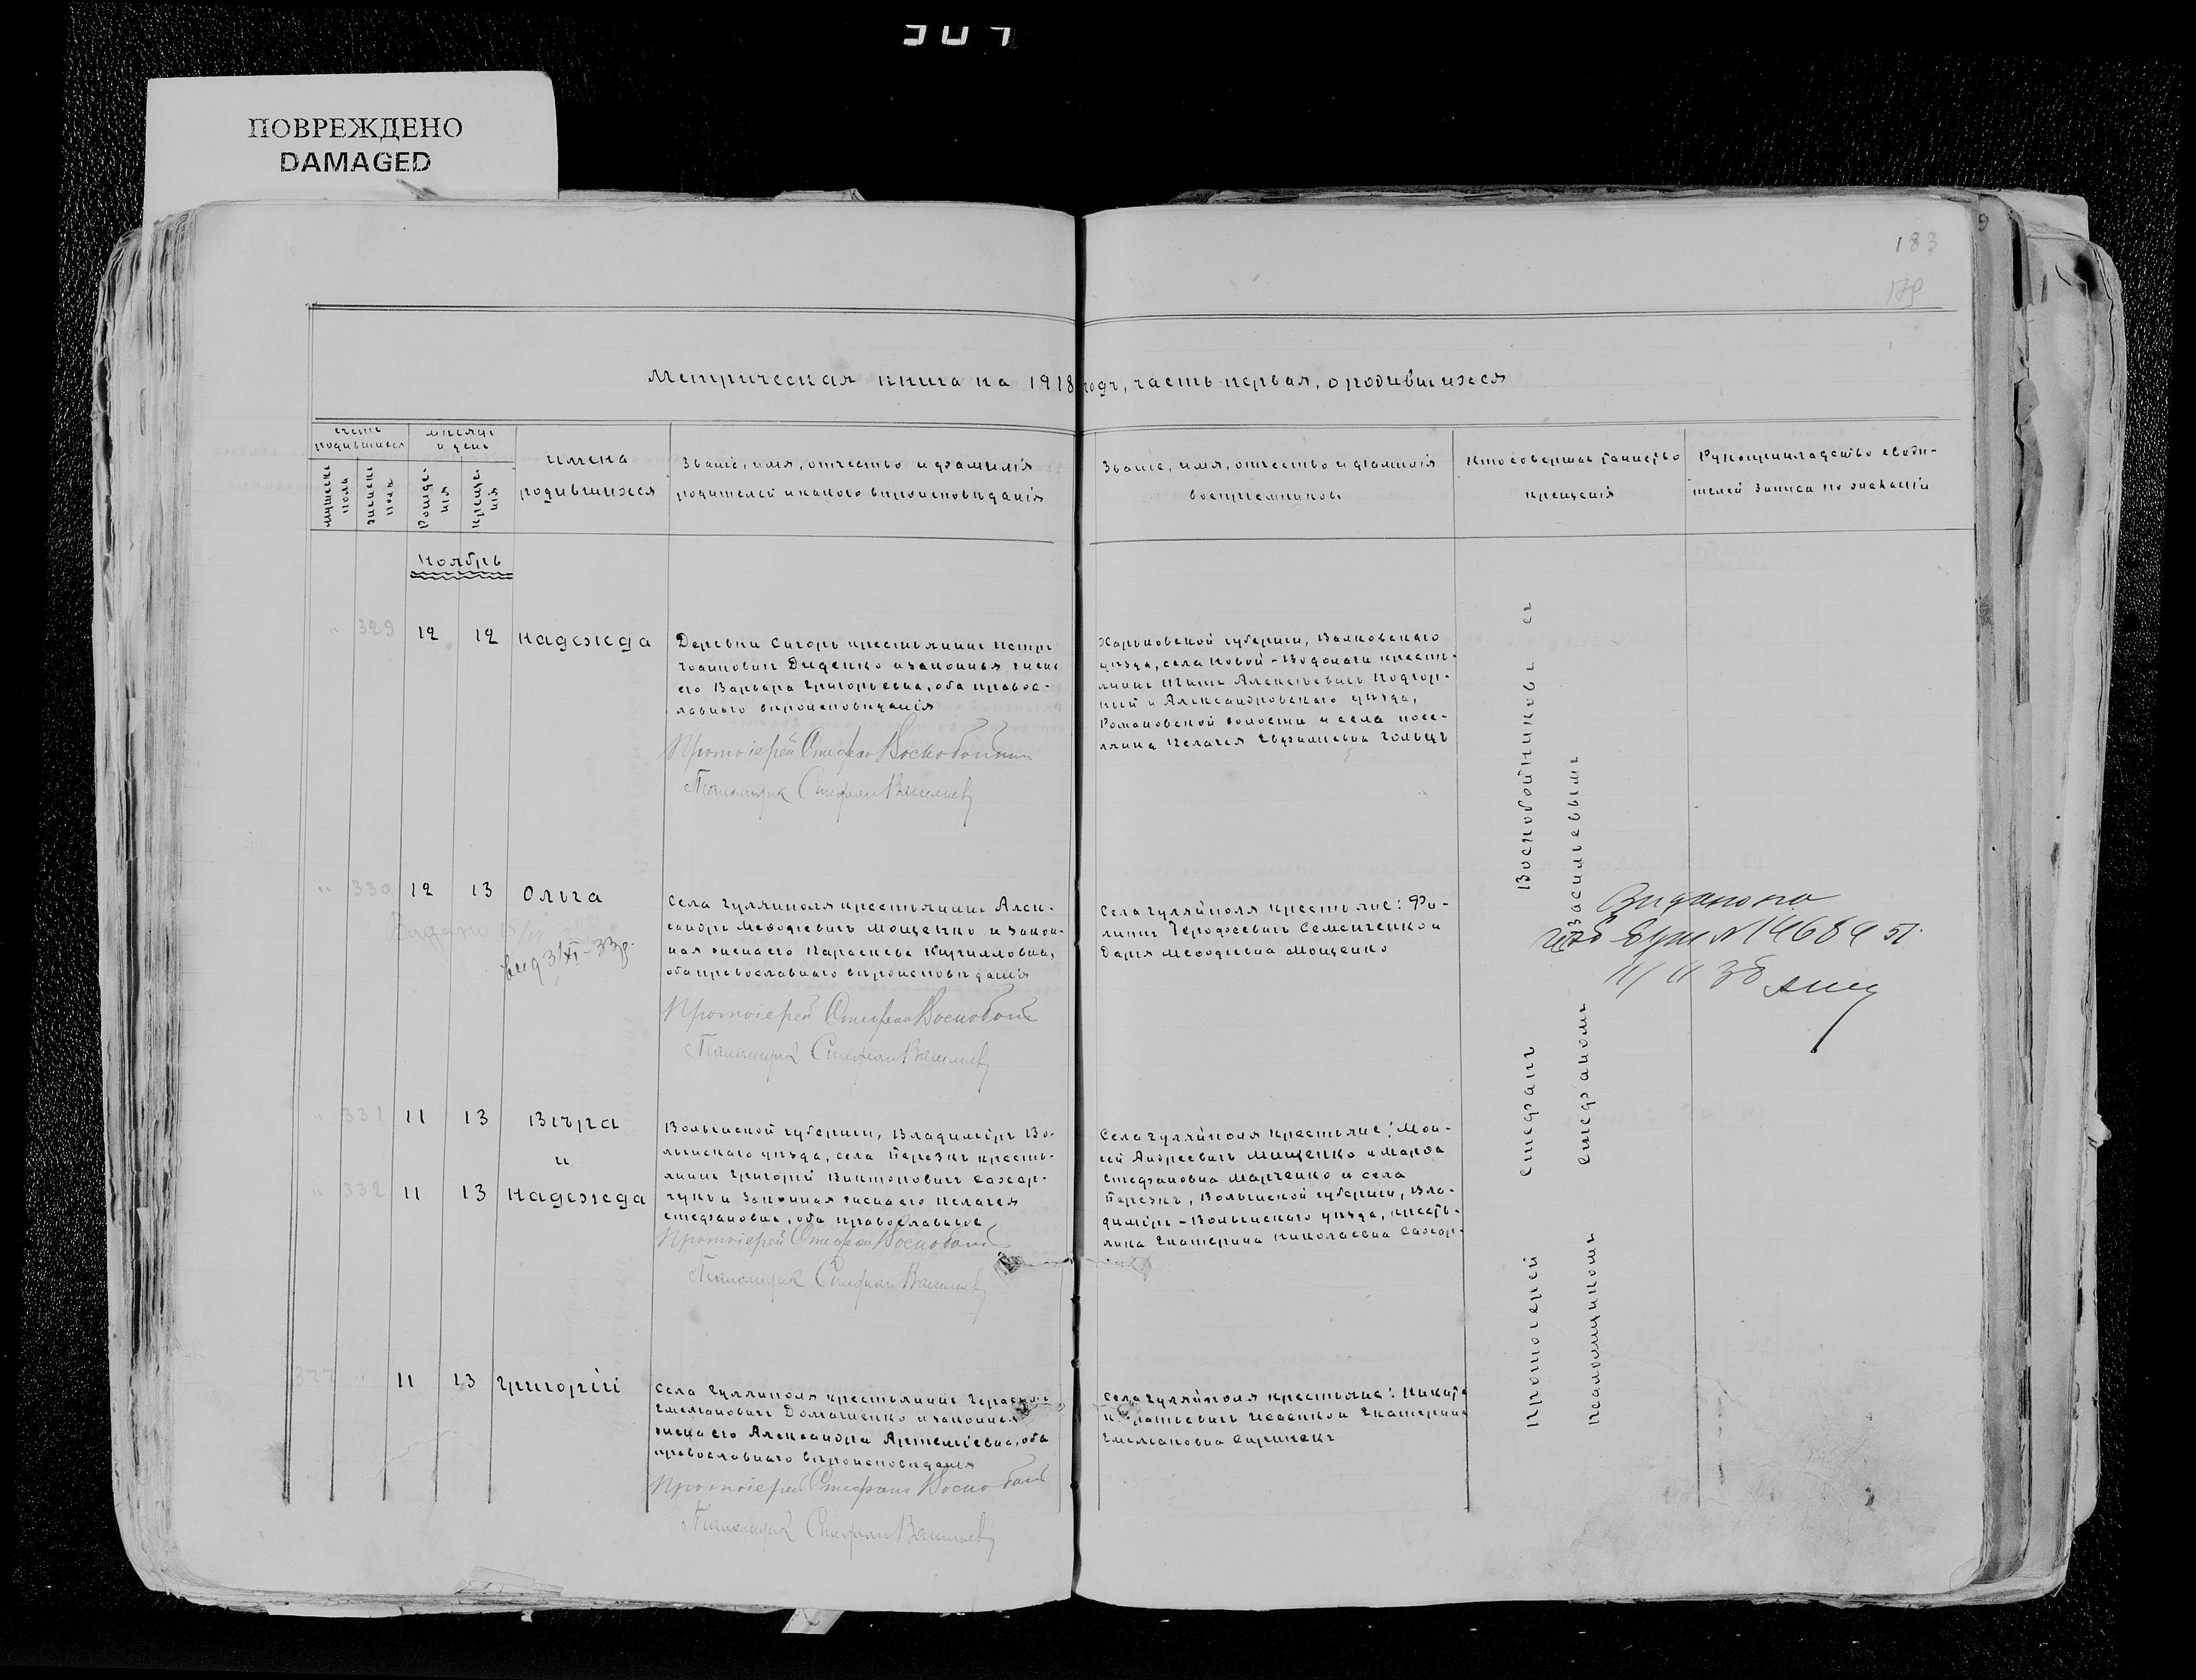 ПОВРЕЖДЕНО
DAMAGED
183
179
Метрическая книга на 1918 годъ, часть первая, о родившихся
счетъ родившихся
мужеска пола
женска пола
мѣсяцъ и день
рожденія
крещенія
имена
родившихся
Званіе, имя, отчество и фамилія
родителей и какого вѣроисповѣданія
Званіе, имя, отчество и фамилія
воспріемниковъ
Кто совершалъ таинство
крещенія
Рукоприкладство свидѣ-
телей записи по желанію
Ноябрь
" 329 12 12 Надежда
Деревни Сигоръ крестьянинъ Петръ
Іоанновичъ Диденко и законная жена
его Варвара Григорьевна, оба правос-
лавнаго вѣроисповѣданія
Протоіерей Стефанъ Воскобойниковъ
Псаломщикъ Стефанъ Васильевъ
Харьковской губерніи, Валковскаго
уѣзда, села Новой-Водолаги кресть-
янинъ Алексѣевичъ Подгор-
ный и Александровскаго уѣзда,
Романовской волости и села посе-
лянка Пелагея Евфиміевна Гольцъ
" 330 12 13 Ольга
Видано
вид 3/XI-33р.
Села Гуляйполя крестьянинъ Алек-
сандръ Меѳодіевичъ Мощенко и закон-
ная жена его Параскева Кирилловна,
оба православнаго вѣроисповѣданія
Протоіерей Стефанъ Воскобой
Псаломщикъ Стефанъ Васильевъ
Села Гуляйполя крестьяне: Фи-
липпъ Ѳеодосеевичъ Семенченко и
Дарія Меѳодіевна Мощенко
№ 14684
11/II 38
" 331 11 13 Вѣра
и
" 332 11 13 Надежда
Волынской губерніи, Владиміръ Во-
лынскаго уѣзда, села кресть-
янинъ Григорій Викторовичъ Сахар-
чукъ и законная жена его Пелагея
Стефановна, оба православные
Протоіерей Стефанъ Воскобой
Псаломщикъ Стефанъ Васильевъ
Села Гуляйполя крестьяне: Мои-
сей Андреевичъ Мищенко и Марѳа
Стефановна Марченко и села
Волынской губерніи, Вла-
диміръ-Волынскаго уѣзда, кресть-
янка Екатерина Николаевна Сахар-
377 " 11 13 Григорій
Села Гуляйполя крестьянинъ Герасимъ
Емельяновичъ Домашенко и законная
жена его Александра Артеміевна, оба
православнаго вѣроисповѣданія
Протоіерей Стефанъ Воскобой
Псаломщикъ Стефанъ Васильевъ
Села Гуляйполя крестьяне: Никита
Исаенко и Екатерина
Емельяновна
Протоіерей Стефанъ Воскобойниковъ съ
псаломщикомъ Стефаномъ Васильевымъ